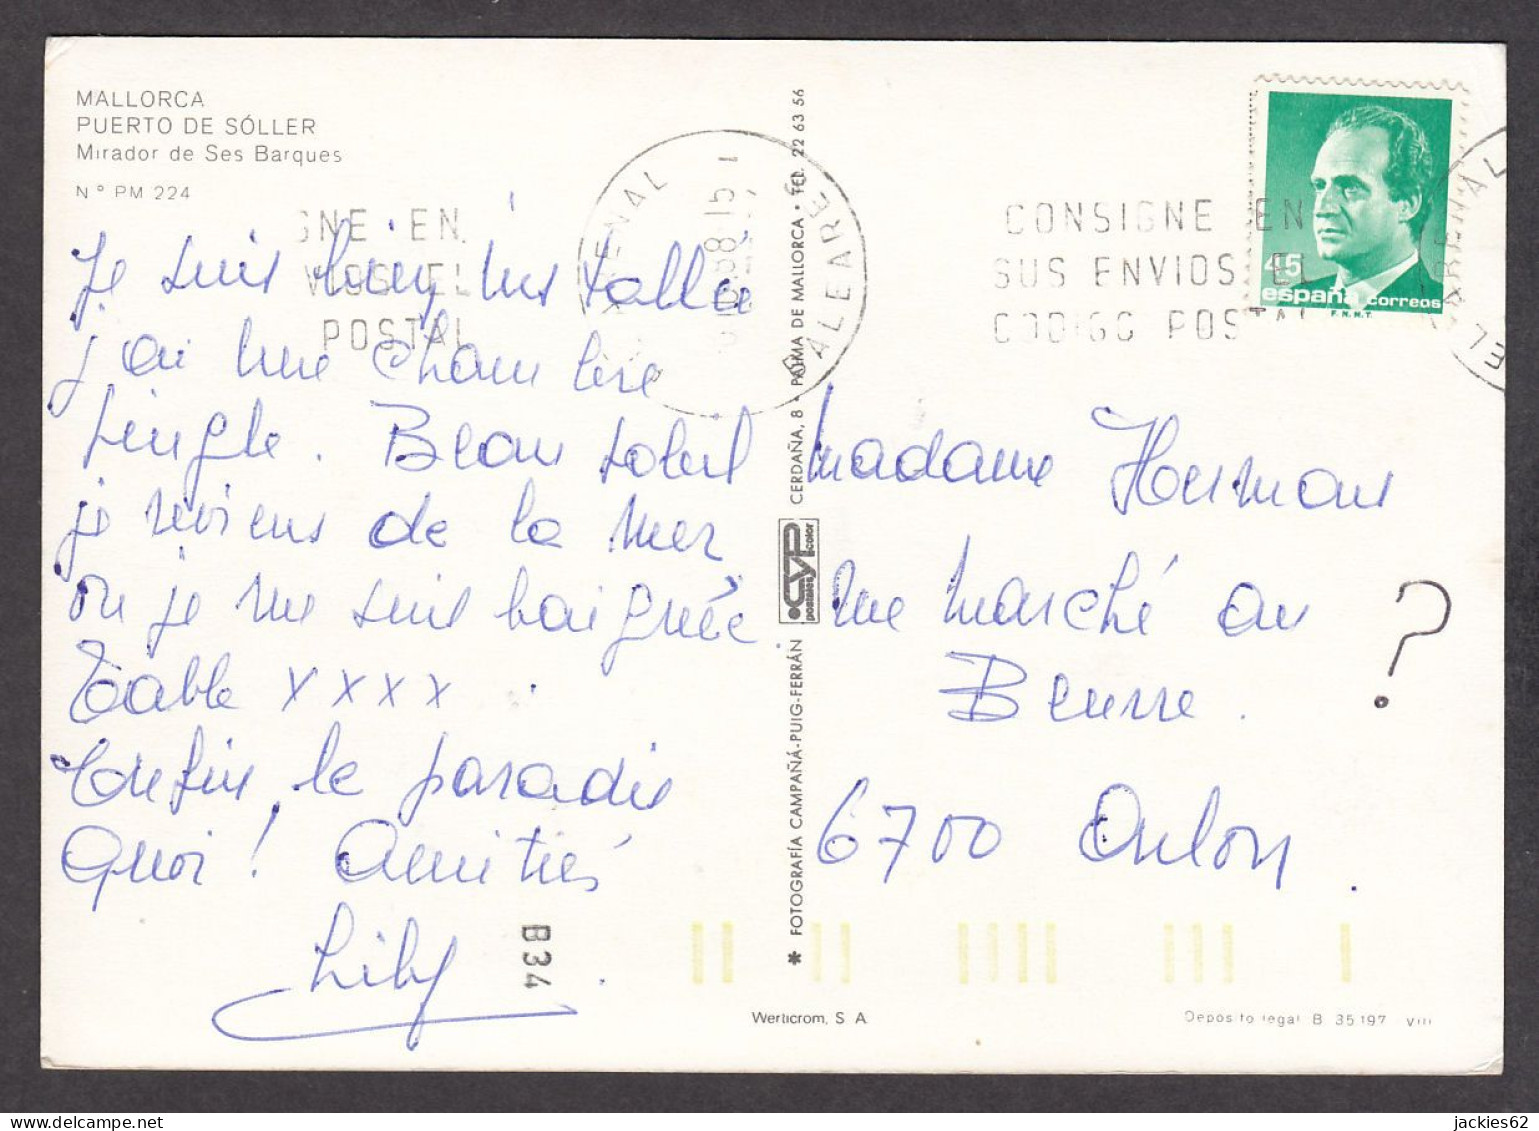 MALLORCA
PUERTO DE SÓLLER
Mirador de Ses Barques
N° PM 224
GNE EN
VIOS EL
POSTAL
BALEARES
CONSIGNE EN
SUS ENVIOS EL
CODIGO POSTAL
45
españa correos
F.N.M.T.
Je suis bien installée
j'ai une chambre
single. Beau soleil
je reviens de la mer
ou je me suis baignée
Table xxxx.
Enfin, le paradis
quoi! Amitiés
Lily
B34
* FOTOGRAFÍA CAMPAÑÁ-PUIG-FERRÁN
CYP
postales color
CERDAÑA, 8 • PALMA DE MALLORCA • TEL. 22 63 56
Madame Hermans
rue marché au
Beurre.
?
6700 Arlon.
Werticrom, S. A.
Depósito legal B. 35.197 VIII
jackies62